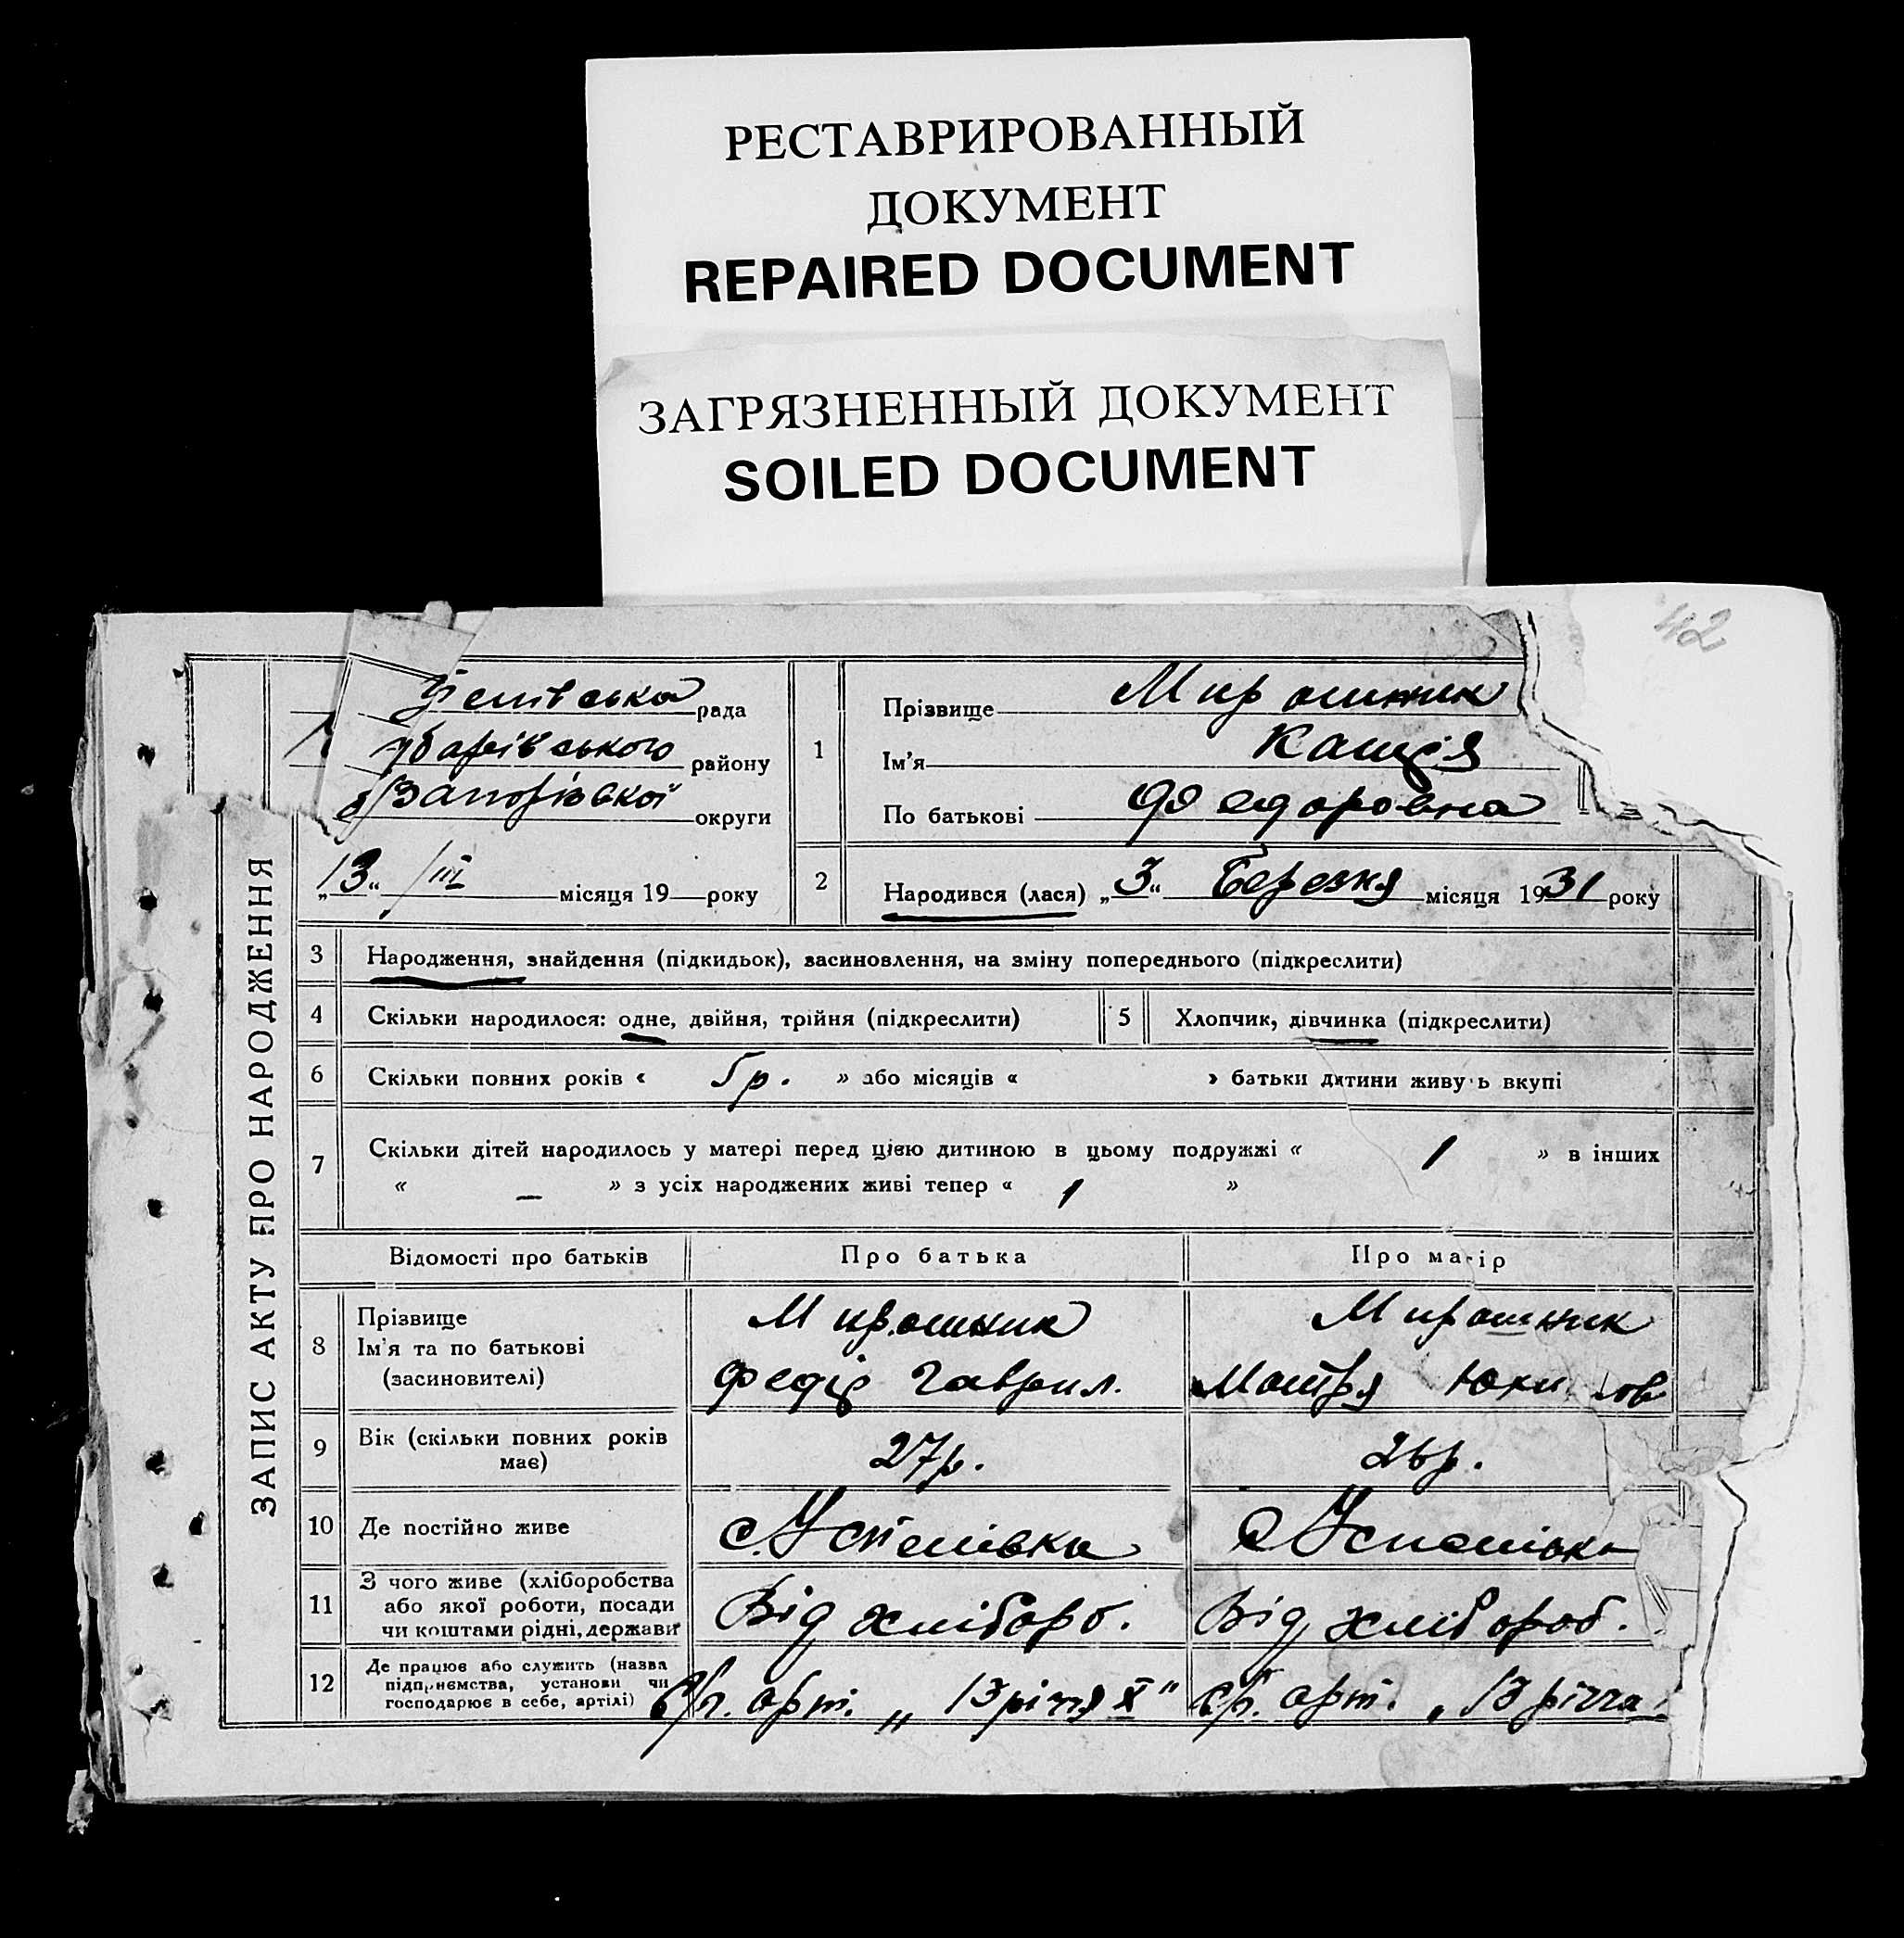 РЕСТАВРИРОВАННЫЙ
ДОКУМЕНТ
REPAIRED DOCUMENT
ЗАГРЯЗНЕННЫЙ ДОКУМЕНТ
SOILED DOCUMENT
42
ЗАПИС АКТУ ПРО НАРОДЖЕННЯ
рада
району
округи
„13“ /III місяця 19 року
1
Прізвище Мирошник
Ім'я
По батькові Федоровна
2 Народився (лася) „3“ Березня місяця 1931 року
3 Народження, знайдення (підкидьок), засиновлення, на зміну попереднього (підкреслити)
4 Скільки народилося: одне, двійня, трійня (підкреслити) 5 Хлопчик, дівчинка (підкреслити)
6 Скільки повних років « 5р. » або місяців « » батьки дитини живуть вкупі
7 Скільки дітей народилось у матері перед цією дитиною в цьому подружжі « 1 » в інших
« – » з усіх народжених живі тепер « 1 »
Відомості про батьків Про батька Про матір
8 Прізвище Мирошник Мирошник
Ім'я та по батькові
(засиновителі) Федір Гаврил. Мотря
9 Вік (скільки повних років має) 27р. 26р.
10 Де постійно живе с. Успенівка с. Успенівка
11 З чого живе (хліборобства
або якої роботи, посади
чи коштами рідні, держави) Від хлібороб. Від хлібороб.
12 Де працює або служить (назва
підприємства, установи чи
господарює в себе, артілі) арт. „13 річчя X" арт. „13 річчя